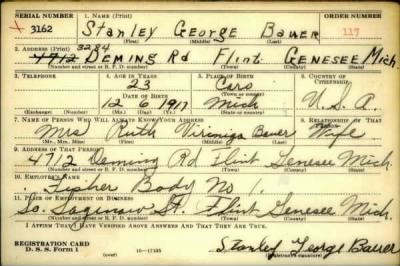 SERIAL NUMBER 1. NAME (Print) ORDER NUMBER
3162 Stanley George Bauer 117
(First) (Middle) (Last)
2. ADDRESS (Print) 3234
4712 Deming Rd Flint Genesee Mich
(Number and street or R. F. D. number) (Town) (County) (State)
3. TELEPHONE 4. AGE IN YEARS 5. PLACE OF BIRTH 6. COUNTRY OF CITIZENSHIP
23 Caro
DATE OF BIRTH (Town or county)
12 6 1917 Mich U.S.A.
(Exchange) (Number) (Mo.) (Day) (Yr.) (State or country)
7. NAME OF PERSON WHO WILL ALWAYS KNOW YOUR ADDRESS 8. RELATIONSHIP OF THAT PERSON
Mrs Ruth Bauer Wife
(Mr., Mrs., Miss) (First) (Middle) (Last)
9. ADDRESS OF THAT PERSON
4712 Deming Rd Flint Genesee Mich.
(Number and street or R. F. D. number) (Town) (County) (State)
10. EMPLOYER'S NAME
Fisher Body No 1.
11. PLACE OF EMPLOYMENT OR BUSINESS
So. Saginaw St. Flint Genesee Mich.
(Number and street or R. F. D. number) (Town) (County) (State)
I AFFIRM THAT I HAVE VERIFIED ABOVE ANSWERS AND THAT THEY ARE TRUE.
REGISTRATION CARD
D. S. S. Form 1 (over) 16—17105 Stanley George Bauer
(Registrant's signature)